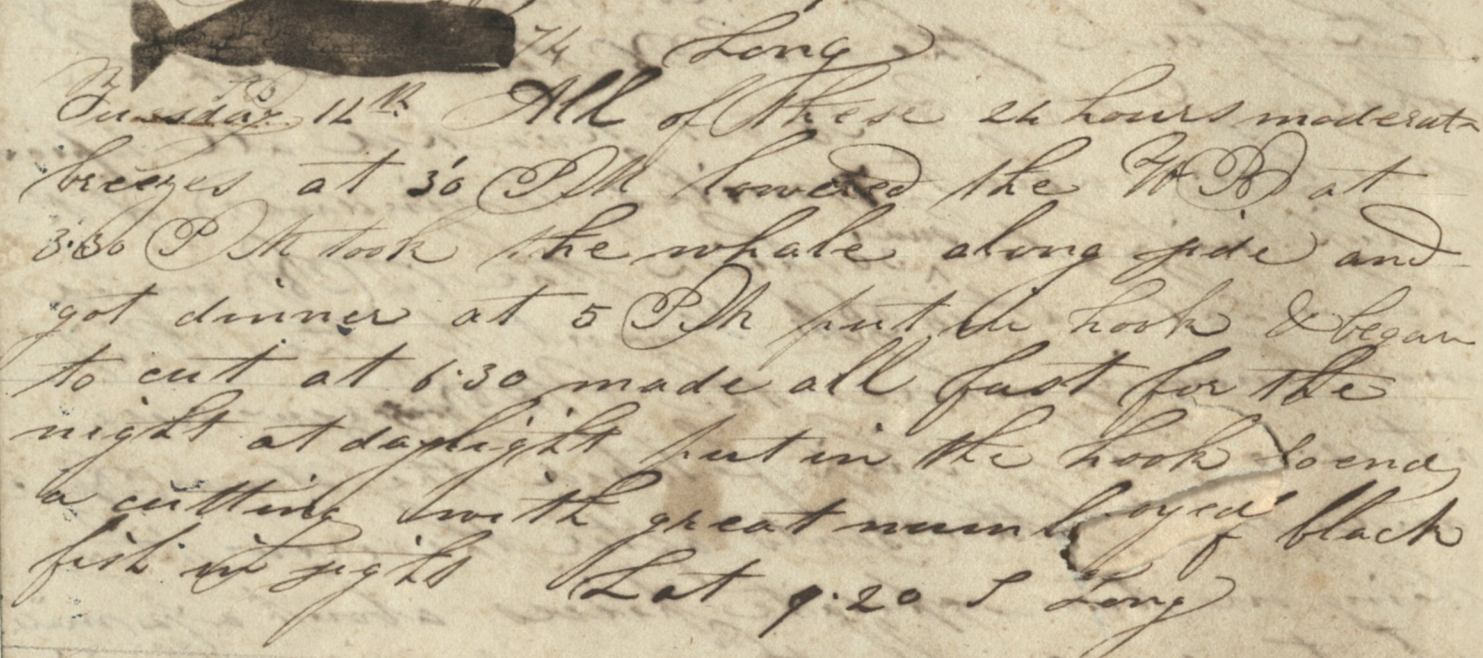 74 Long
Tuesday 12th All of these 24 hours moderat
breezes at 30 PM lowered the WB at
3.30 PM took the whale along side and
got dinner at 5 PM put in hook & began
to cut at 6.30 made all fast for the
night at daylight put in the hook So ends
a cutting with great num of black
fish in sight Lat 9.20 S Long